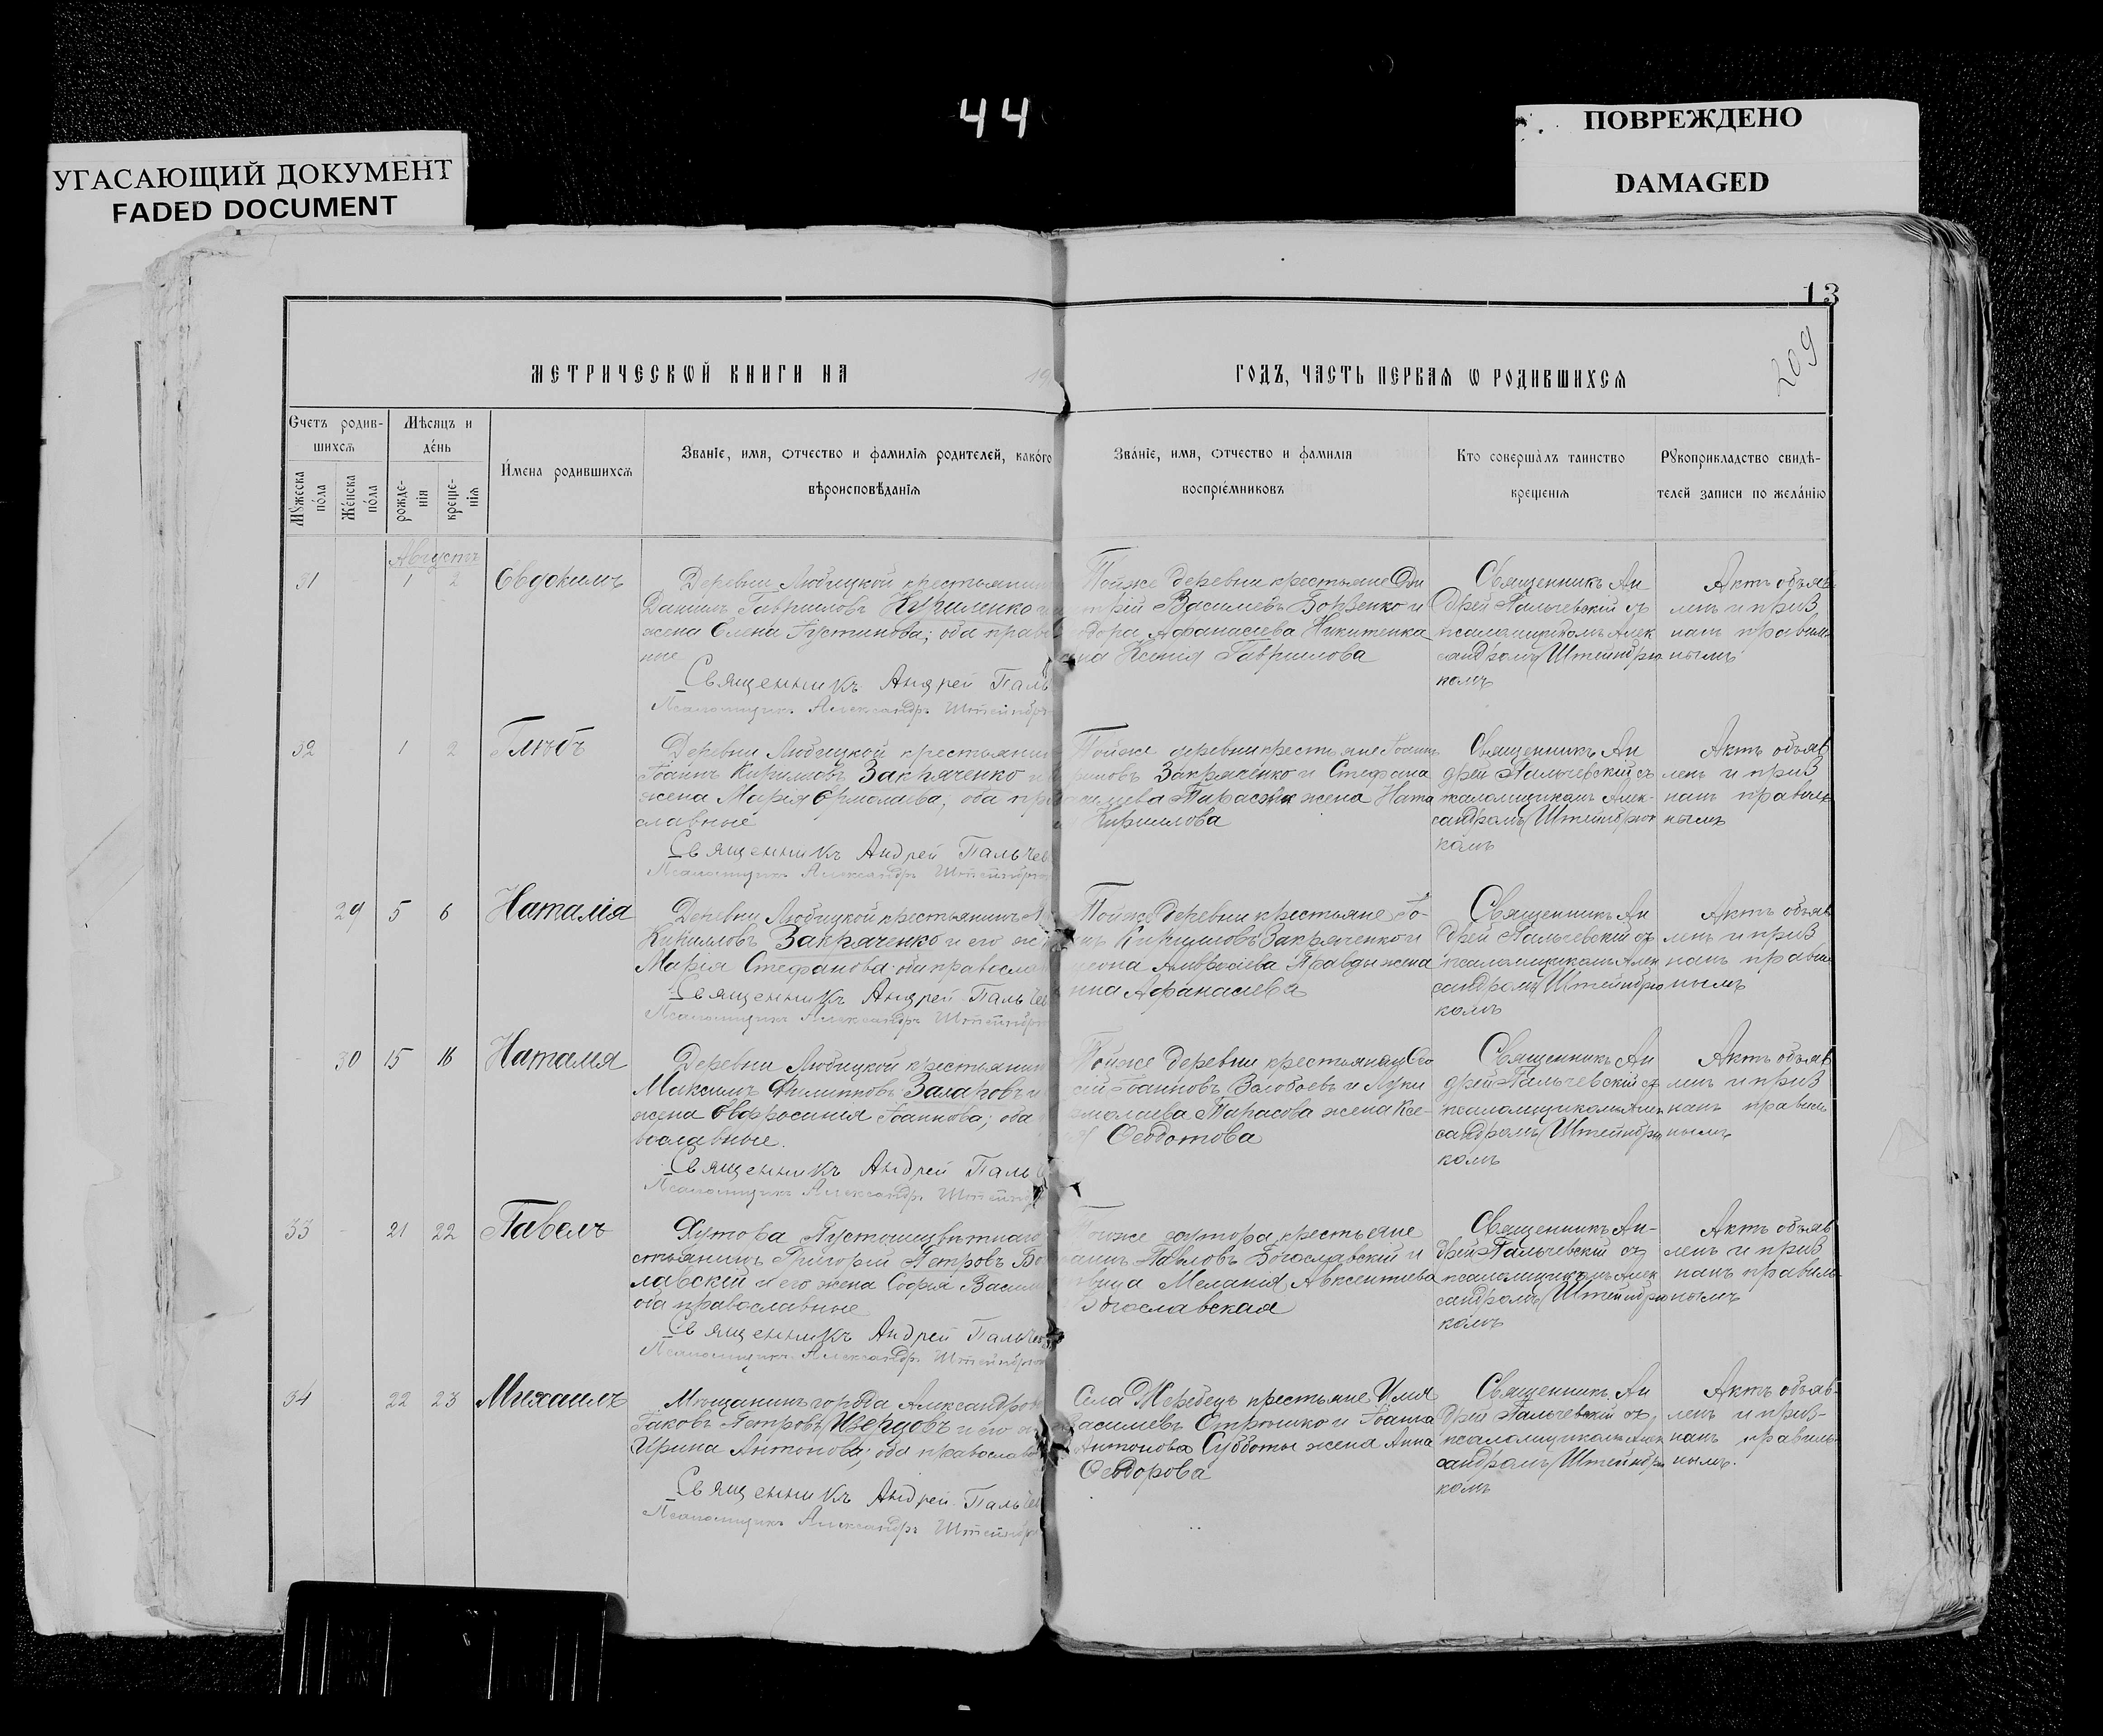 44
УГАСАЮЩИЙ ДОКУМЕНТ
FADED DOCUMENT
ПОВРЕЖДЕНО
DAMAGED
13
209
МЕТРИЧЕСКѠЙ КНИГИ НА 19
ГОДЪ, ЧАСТЬ ПЕРВАѦ Ѡ РОДИВШИХСѦ
Счетъ родив-
шихсѧ
Мꙋжеска
пола
Женска
пола
Мѣсяцъ и
день
рожде-
нїѧ
креще-
нїѧ
Имена родившихсѧ
Званїе, имя, ѿчество и фамилїѧ родителей, какого
вѣроисповѣданїѧ
Званїе, имя, ѿчество и фамилїѧ
воспрїемниковъ
Кто совершалъ таинство
крещенїѧ
Рꙋкоприкладство свидѣ-
телей записи по желанїю
Августъ
31 1 2 Евдокимъ
Деревни Любицкой крестьянин
Даниилъ Гавриловъ Куриленко и
жена Елена Іустинова; оба право
ные
Священникъ Андрей Паль
Псаломщикъ Александръ Штейнбрю
Тойже деревни крестьяне
трій Василіевъ Борзенко и
одора Афанасіева Никитенка
ена Ксенія Гавриилова
Священникъ Ан
дрей Пальчевскій съ
псаломщикомъ Алек
сандромъ Штейнбрю
комъ
Актъ объяв
ленъ и приз
нанъ правиль
нымъ
32 1 2 Глѣбъ
Деревни Любицкой крестьянин
Іоаннъ Кирилловъ Закряченко и
жена Марія Ермолаева; оба пра
славные
Священникъ Андрей Пальчев
Псаломщикъ Александръ Штейнбрю
Тойже деревни крестьяне Іоанн
Закряченко и Стефана
жена Ната
Кириллова
Священникъ Ан
дрей Пальчевскій съ
псаломщикомъ Алек-
сандромъ Штейнбрю
комъ
Актъ объяв
ленъ и приз
нанъ правиль
нымъ
29 5 6 Наталія
Деревни Любицкой крестьянинъ
Кирилловъ Закряченко и его же
Марія Стефанова; оба правосла
Священникъ Андрей Пальчев
Псаломщикъ Александръ Штейнбрю
Тойже деревни крестьяне Іо-
нъ Кирилловъ Закряченко и
Амвросіева Правды жена
нна Афанасіева
Священникъ Ан
дрей Пальчевскій съ
псаломщикомъ Алек
сандромъ Штейнбрю
комъ
Актъ объяв
ленъ и приз
нанъ правиль
нымъ
30 15 16 Наталія
Деревни Любицкой крестьянин
Максимъ Филипповъ Захаровъ и
жена Евфросинія Іоаннова; оба
вославные.
Священникъ Андрей Пальч
Псаломщикъ Александръ Штейнбр
Тойже деревни крестьянъ
сій Іоанновъ и Луки
рмолаева Тарасова жена Ксе-
Ѳеодотова
Священникъ Ан
дрей Пальчевскій съ
псаломщикомъ Алек
сандромъ Штейнбрю
комъ
Актъ объяв
ленъ и приз
нанъ правиль
нымъ
33 21 22 Павелъ
Хутора Пустоцвѣтнаго
стьянинъ Григорій Петровъ Бо
лавскій и его жена Софія Васил
оба православные
Священникъ Андрей Пальчев
Псаломщикъ Александръ Штейнбрю
Тойже хутора крестьяне
Павловъ Богославскій и
Меланія Авксентіева
Богославская
Священникъ Ан-
дрей Пальчевскій съ
псаломщикомъ Алек
сандромъ Штейнбрю
комъ
Актъ объяв
ленъ и приз
нанъ правиль
нымъ
34 22 23 Михаилъ
Мѣщанинъ города Александров
Іаковъ Петровъ и его ж
Ирина Антонова; оба православ
Священникъ Андрей Пальчев
Псаломщикъ Александръ Штейнбр
Села Жеребецъ крестьяне Илія
асиліевъ Стрюшко и Іоанна
Антонова Субботы жена Анна
Ѳеодорова
Священникъ Ан
дрей Пальчевскій съ
псаломщикомъ Алек
сандромъ Штейнбрю
комъ
Актъ объяв-
ленъ и приз-
нанъ правиль
нымъ.